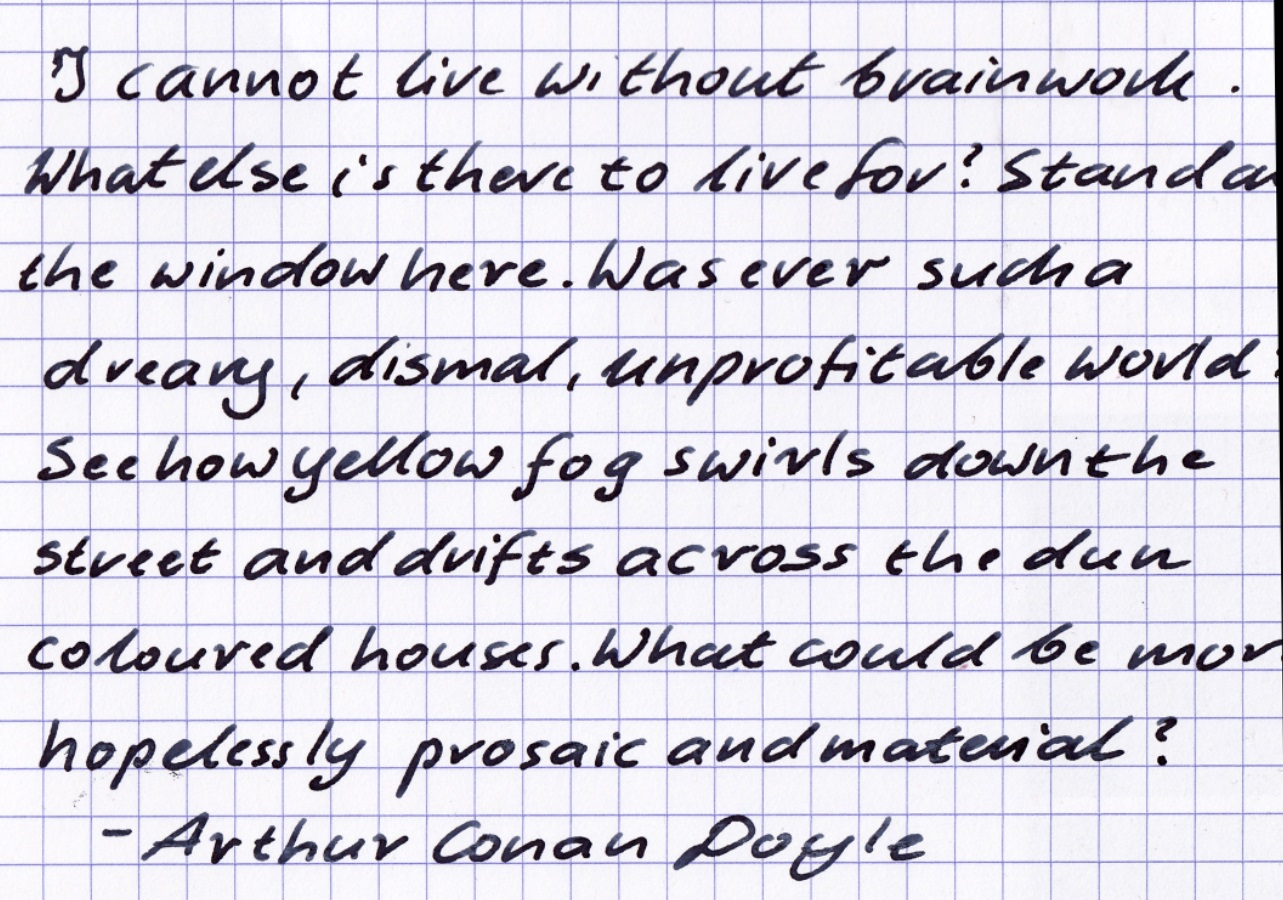 "I cannot live without brainwork.
What else is there to live for? Stand a
the window here. Was ever such a
dreary, dismal, unprofitable world
See how yellow fog swirls down the
street and drifts across the dun
coloured houses. What could be mor
hopelessly prosaic and material?
- Arthur Conan Doyle